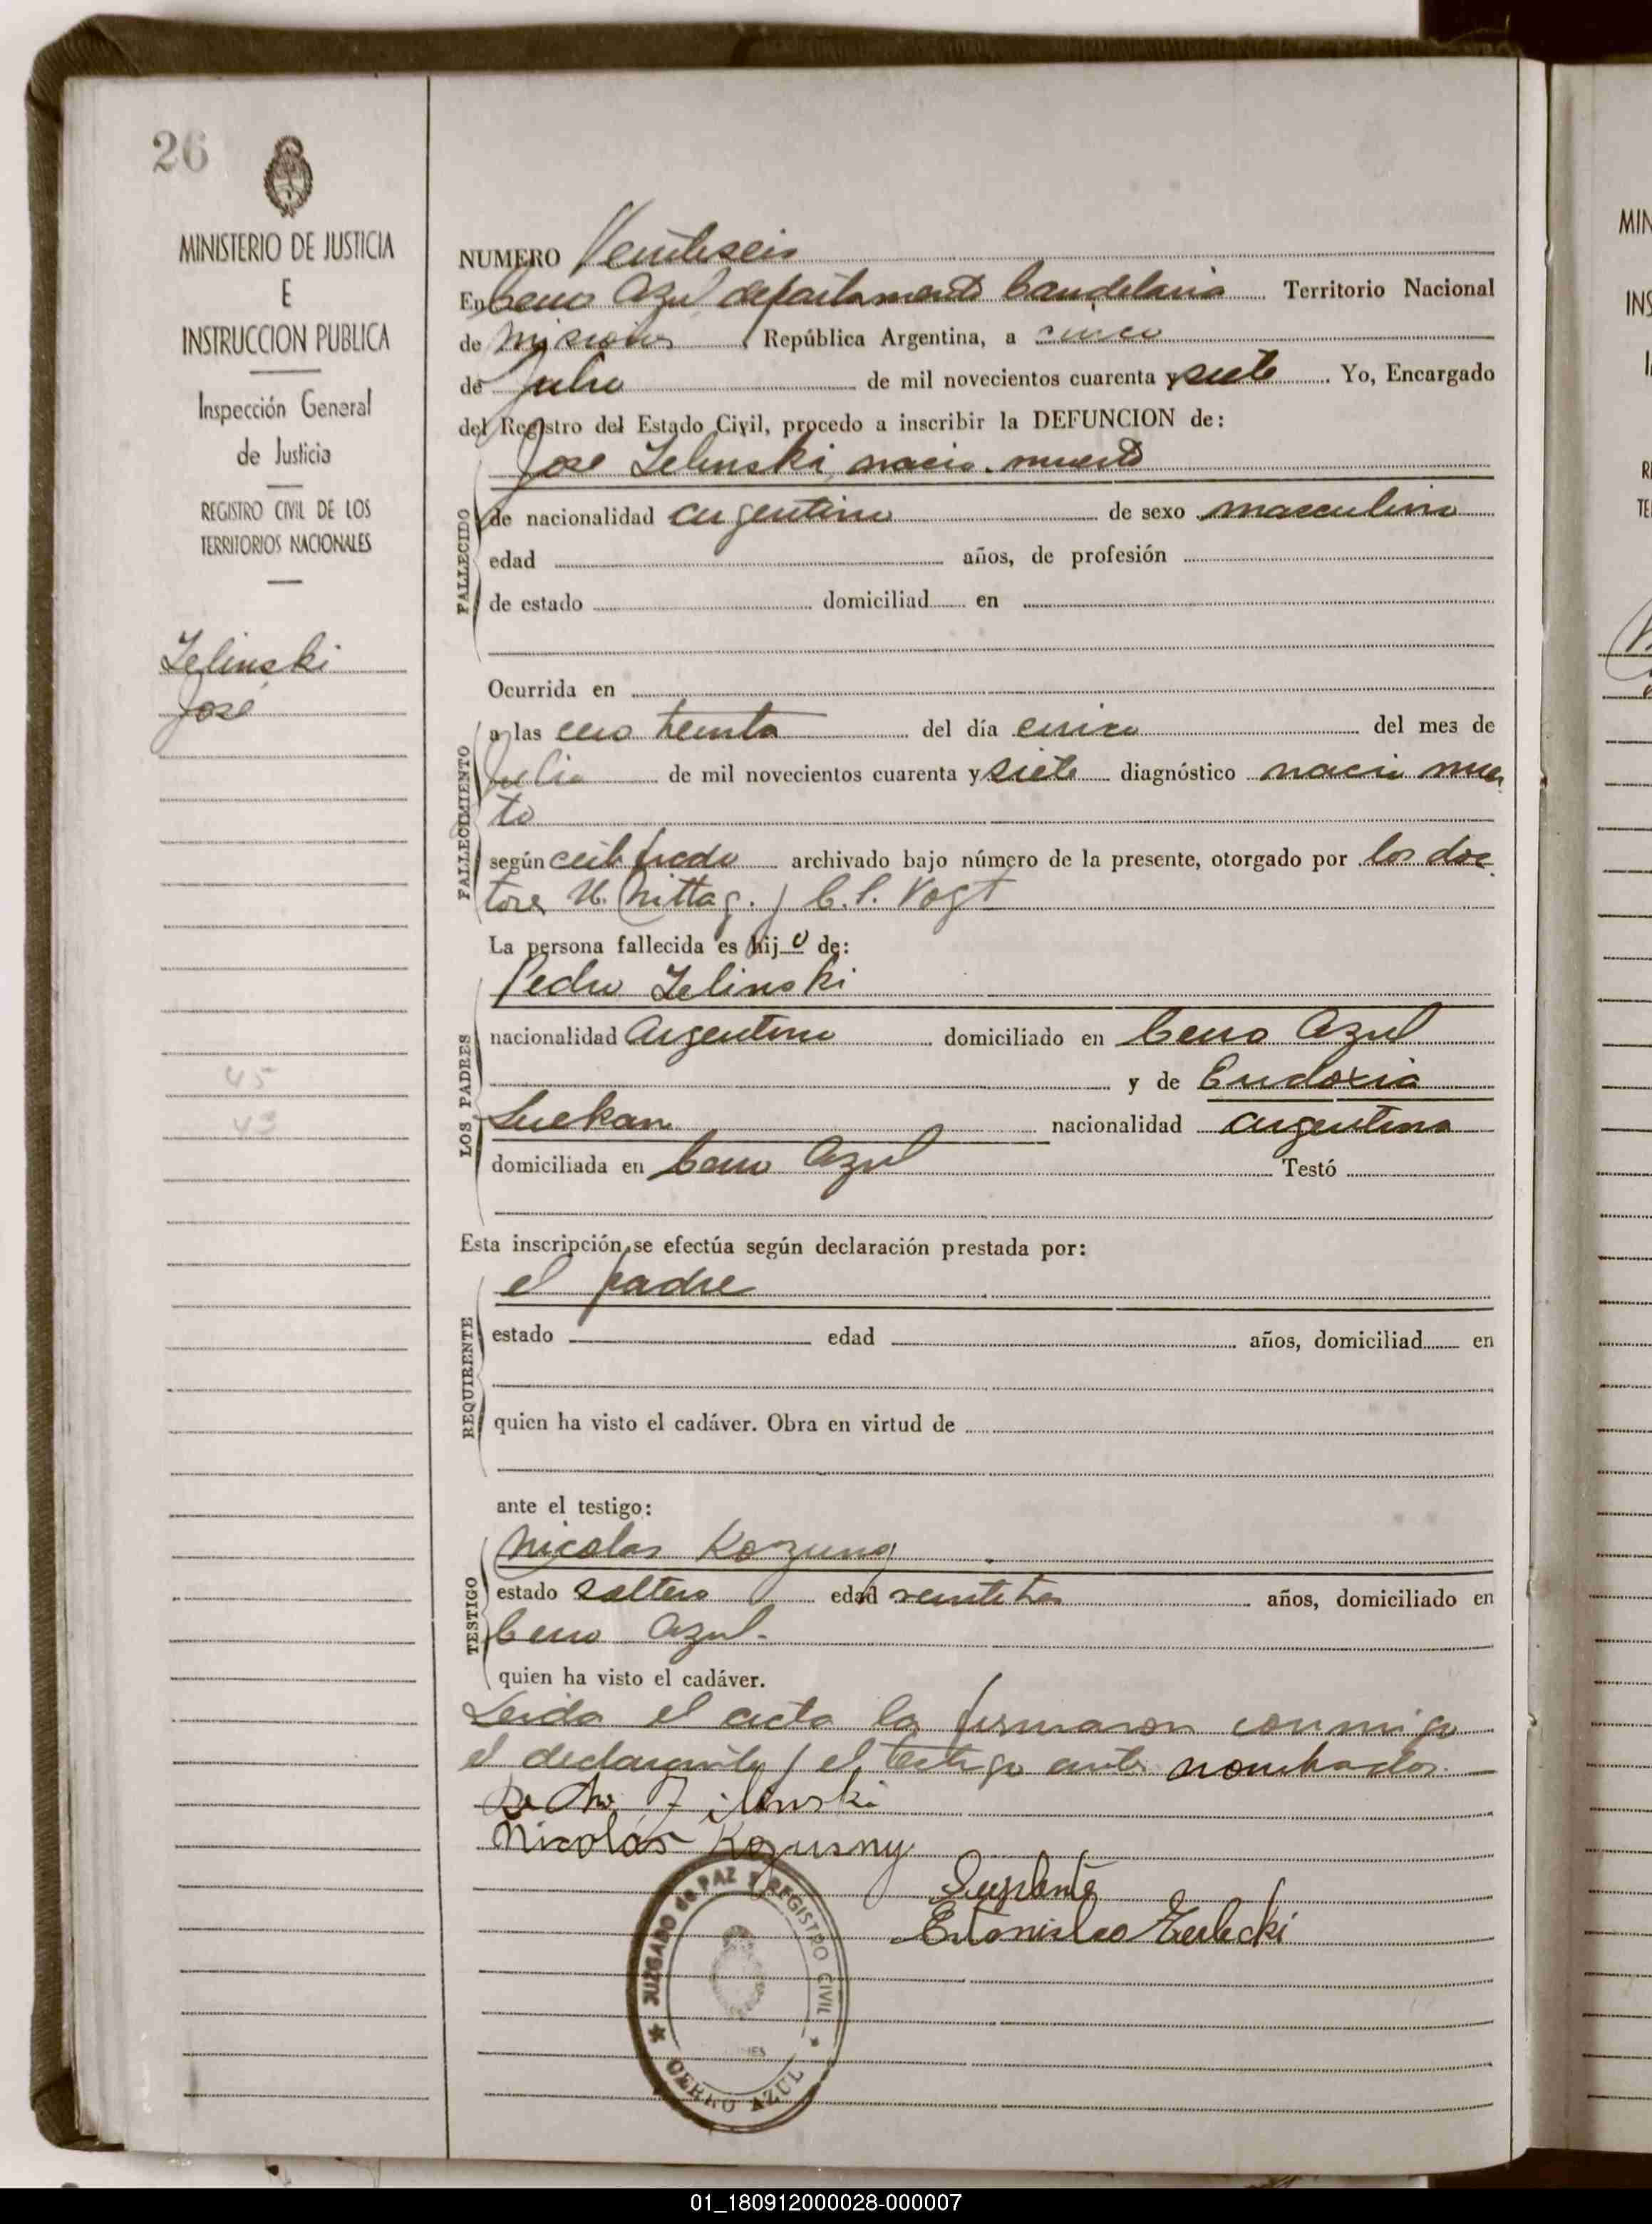 26
MINISTERIO DE JUSTICIA
E
INSTRUCCION PUBLICA
Inspección General
de Justicia
REGISTRO CIVIL DE LOS
TERRITORIOS NACIONALES
Zelinski
José
45
43
NUMERO Veintiseis
En Cerro Azul departamento Candelaria Territorio Nacional
de Misiones República Argentina, a cinco
de Julio de mil novecientos cuarenta y siete. Yo, Encargado
del Registro del Estado Civil, procedo a inscribir la DEFUNCION de:
José Zelinski nacio muerto
FALLECIDO
de nacionalidad argentino de sexo masculino
edad años, de profesión
de estado domiciliad en
Ocurrida en
FALLECIMIENTO
a las cero treinta del día cinco del mes de
Julio de mil novecientos cuarenta y siete diagnóstico nacio muer
to
según certificado archivado bajo número de la presente, otorgado por los doc
tores U. Mittag. y C. S. Vogt
La persona fallecida es hijo de:
Pedro Zelinski
LOS PADRES
nacionalidad Argentino domiciliado en Cerro Azul
y de Eudoxia
Luckan nacionalidad argentina
domiciliada en Cerro Azul Testó
Esta inscripción se efectúa según declaración prestada por:
el padre
REQUIRENTE
estado edad años, domiciliad en
quien ha visto el cadáver. Obra en virtud de
ante el testigo:
Nicolas Kozusny
TESTIGO
estado soltero edad veinte tres años, domiciliado en
Cerro Azul.
quien ha visto el cadáver.
Leida el acta la firmaron conmigo
el declarante y el testigo antes nombrados.
Pedro Zilinski
Nicolás Kozusny
Suplente
Estanislao Zerlecki
JUZGADO DE PAZ Y REGISTRO CIVIL
CERRO AZUL
MIN
INS
TE
01_180912000028-000007